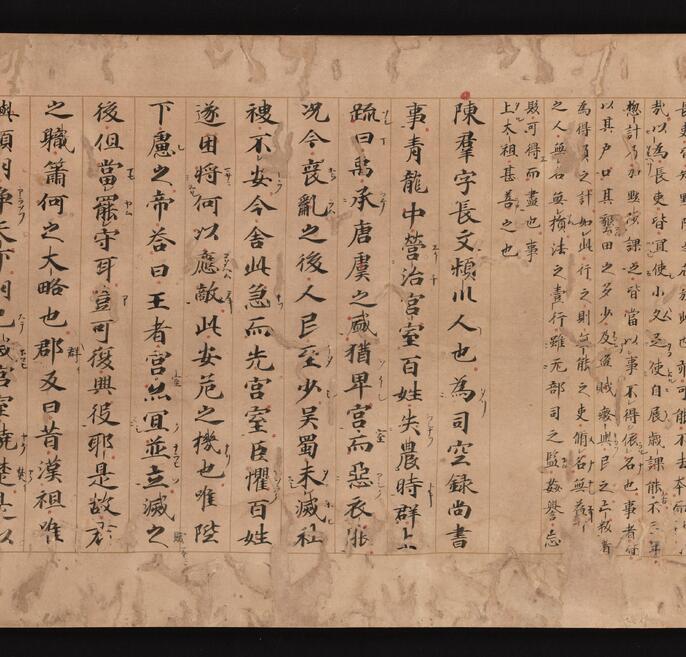 哉以為長吏皆宜使小久足使自展歲課能不三年
惣計乃加黜陟課之皆當以事不得依名也事者皆
以其戶口其墾田之多少及盜賊發興民之亡叛者
為得負之計如此行之則無能之吏脩名無益有能
之人無名無損法之壹行雖无部司之監姦譽忘
毀可得而盡也事
上太祖甚善之也
陳羣字長文潁川人也為司空録尚書
事青龍中營治宮室百姓失農時群上
疏曰禹承唐虞之盛猶卑宮而惡衣服
况今喪亂之後人民至少吳蜀未滅社
稷不安今舍此急而先宮室臣懼百姓
遂困將何以應敵此安危之機也唯陛
下慮之帝答曰王者宮室亦宜並立滅之
後但當罷守耳豈可復興役耶是故君
之職簫何之大略也郡又曰昔漢祖唯
與項羽爭天下羽已滅宮室燒焚是以